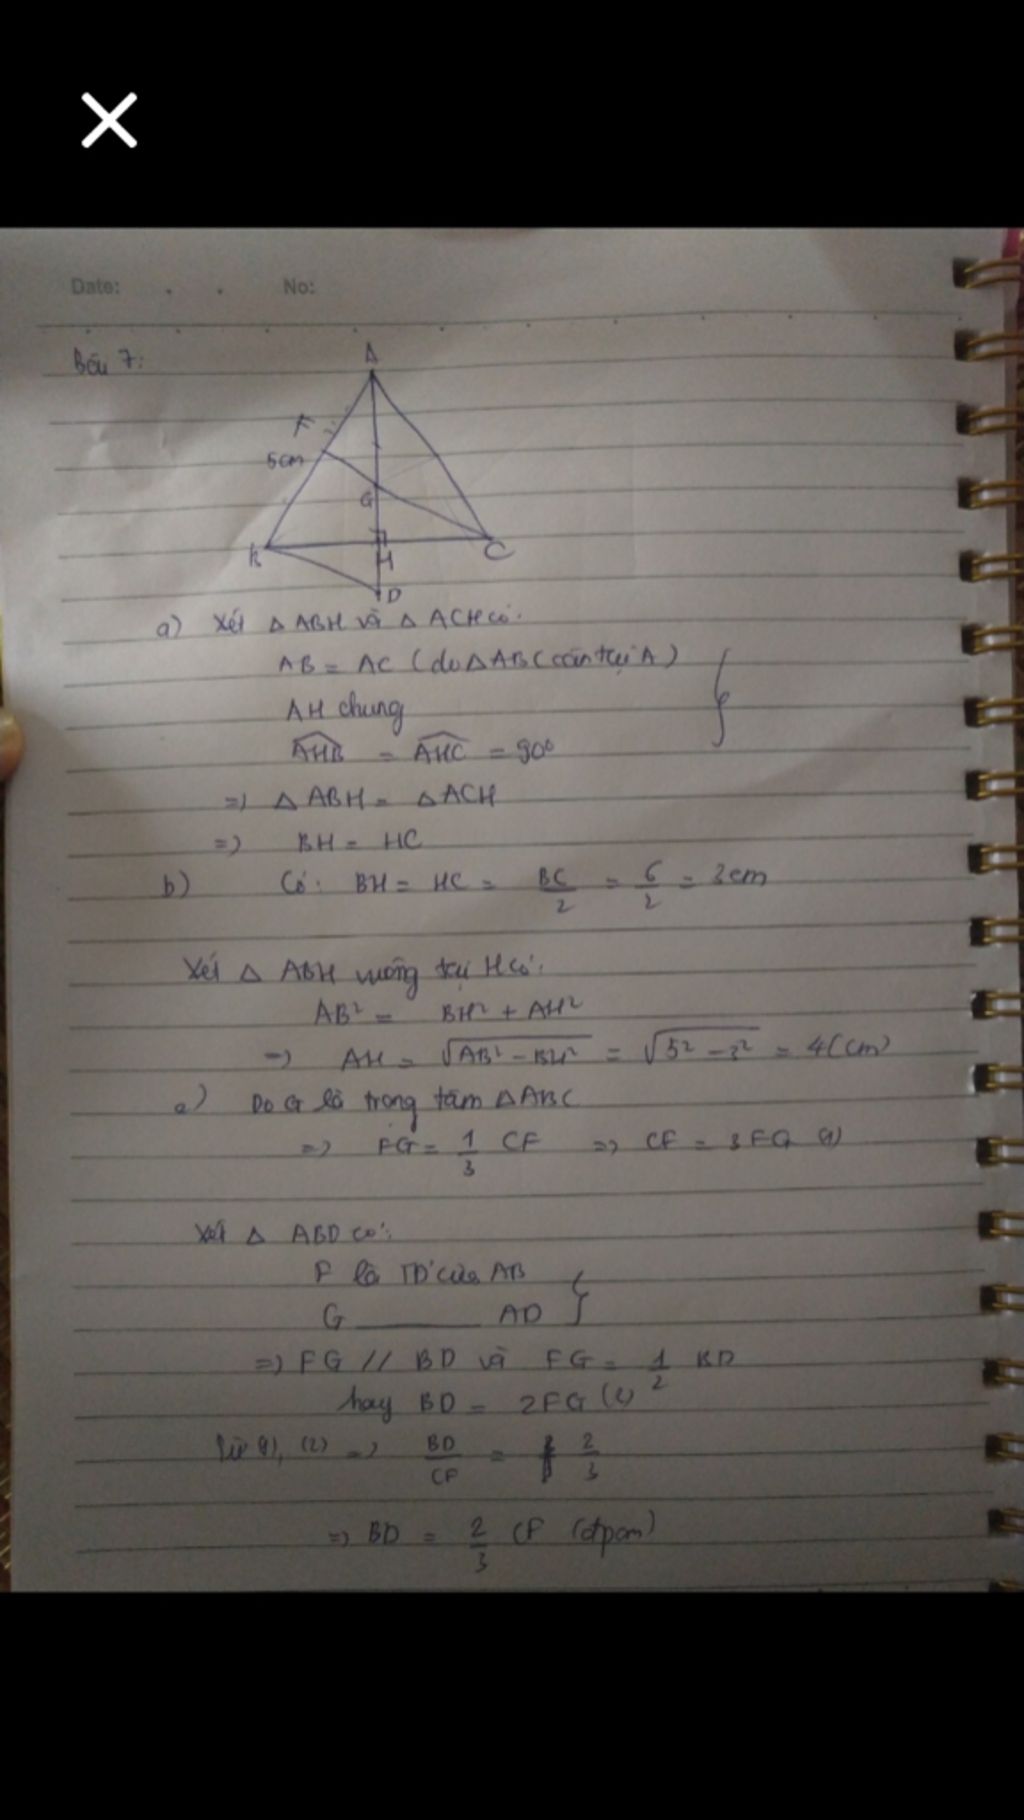 Date: . . No:
Bài 7:
A
F
5cm
G
B
H
C
D
a) Xét △ ABH và △ ACH có:
AB = AC (do △ABC cân tại A)
AH chung
AHB = AHC = 90°
=> △ ABH = △ACH
=> BH = HC
b) Có: BH = HC = BC/2 = 6/2 = 3cm
Xét △ ABH vuông tại H có:
AB² = BH² + AH²
=> AH = √AB² - BH² = √5² - 3² = 4(cm)
c) Do G là trọng tâm △ABC
=> FG = 1/3 CF => CF = 3FG (1)
Xét △ ABD có:
F là TĐ của AB
G ——— AD
=> FG // BD và FG = 1/2 BD
hay BD = 2FG (2)
Từ (1), (2) => BD/CF = 2/3
=> BD = 2/3 CF (đpcm)